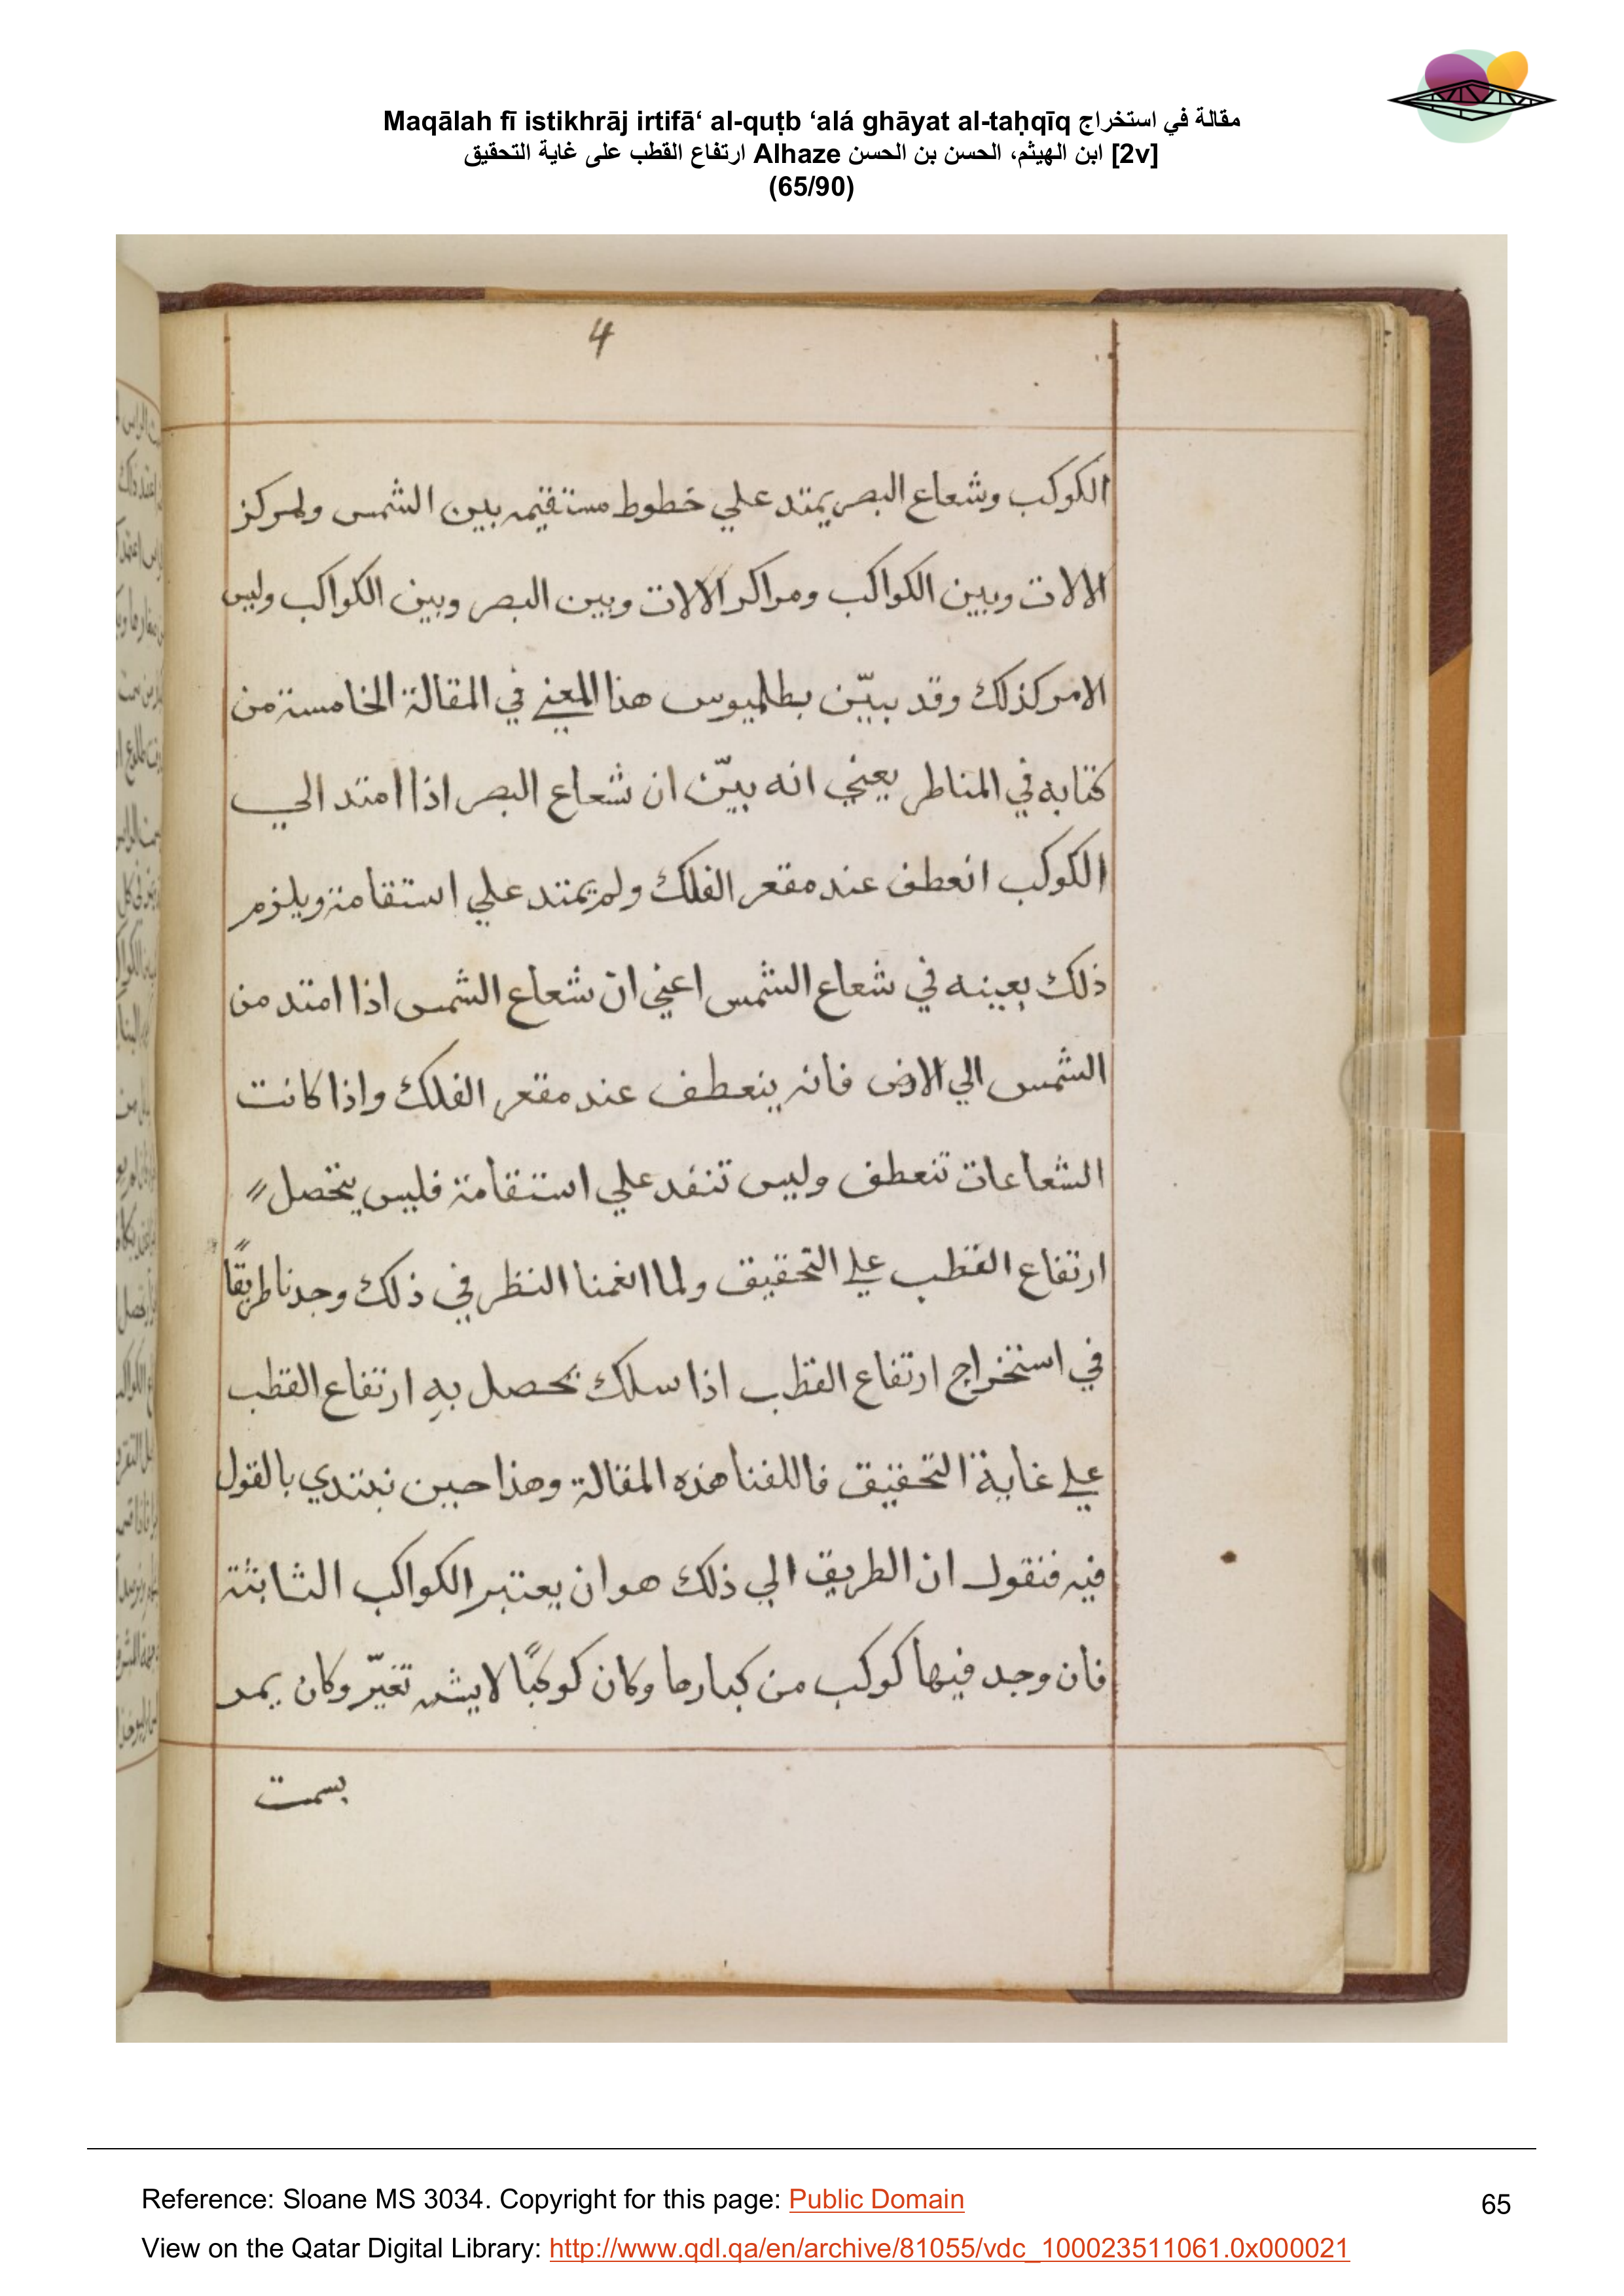 Maqālah fī istikhrāj irtifā‘ al-quṭb ‘alá ghāyat al-taḥqīq مقالة في استخراج
ارتفاع القطب على غاية التحقيق Alhaze ابن الهيثم، الحسن بن الحسن [2v]
(65/90)
4
الكوكب وشعاع البصر يمتد علي خطوط مستقيمه بين الشمس ولمركز
الالات وبين الكواكب ومراكر الالات وبين البصر وبين الكواكب وليس
الامر كذلك وقد بيّن بطلميوس هذا المعني في المقالة الخامسة من
كتابه في المناطر يعني انه بيّن ان شعاع البصر اذا امتد الي
الكوكب انعطف عند مقعر الفلك ولم يمتد علي استقامة ويلزم
ذلك بعينه في شعاع الشمس اعني انّ شعاع الشمس اذا امتد من
الشمس الي الارض فانه ينعطف عند مقعر الفلك واذا كانت
الشعاعات تنعطف وليس تنفد علي استقامة فليس يتحصل
ارتفاع القطب علي التحقيق ولما انعمنا النظر في ذلك وجدنا طريقًا
في استخراج ارتفاع القطب اذا سلك يحصل به ارتفاع القطب
علي غاية التحقيق فاللفنا هذه المقالة وهذا حين نبتدي بالقول
فيه فنقول ان الطريق الي ذلك هو ان يعتبر الكواكب الثابتة
فان وجد فيها كوكب من كبارها وكان كوكبًا لا تغيّر وكان يمر
بسمت
Reference: Sloane MS 3034. Copyright for this page: Public Domain
65
View on the Qatar Digital Library: http://www.qdl.qa/en/archive/81055/vdc_100023511061.0x000021